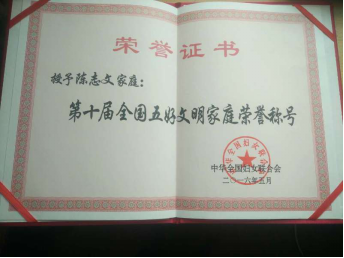 荣誉证书
授予陈志文家庭：
第十届全国五好文明家庭荣誉称号
中华全国妇女联合会
二〇一六年五月